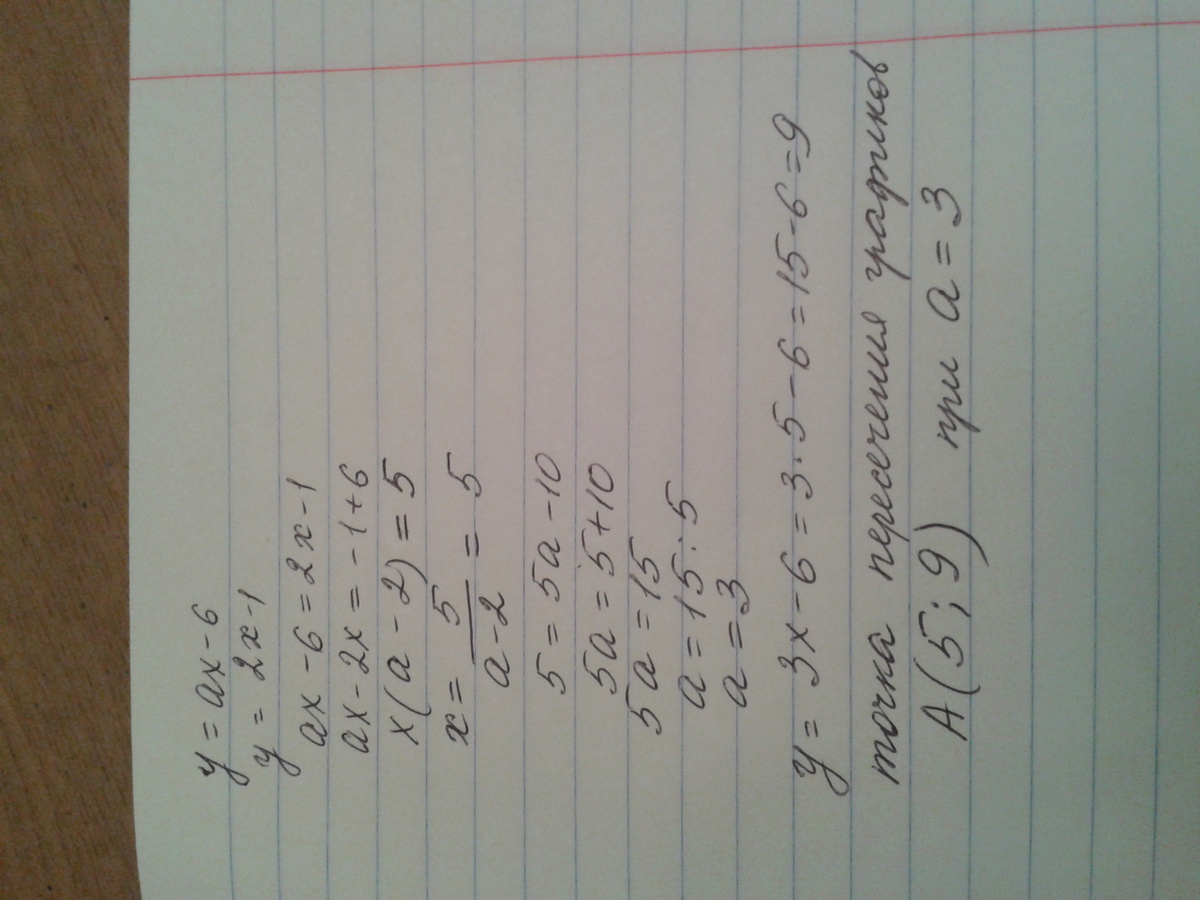 y = ax - 6
y = 2x - 1
ax - 6 = 2x - 1
ax - 2x = -1 + 6
x(a - 2) = 5
x = 5/(a - 2) = 5
5 = 5a - 10
5a = 5 + 10
5a = 15
a = 15 : 5
a = 3
y = 3x - 6 = 3·5 - 6 = 15 - 6 = 9
точка пересечения графиков
A(5; 9) при a = 3